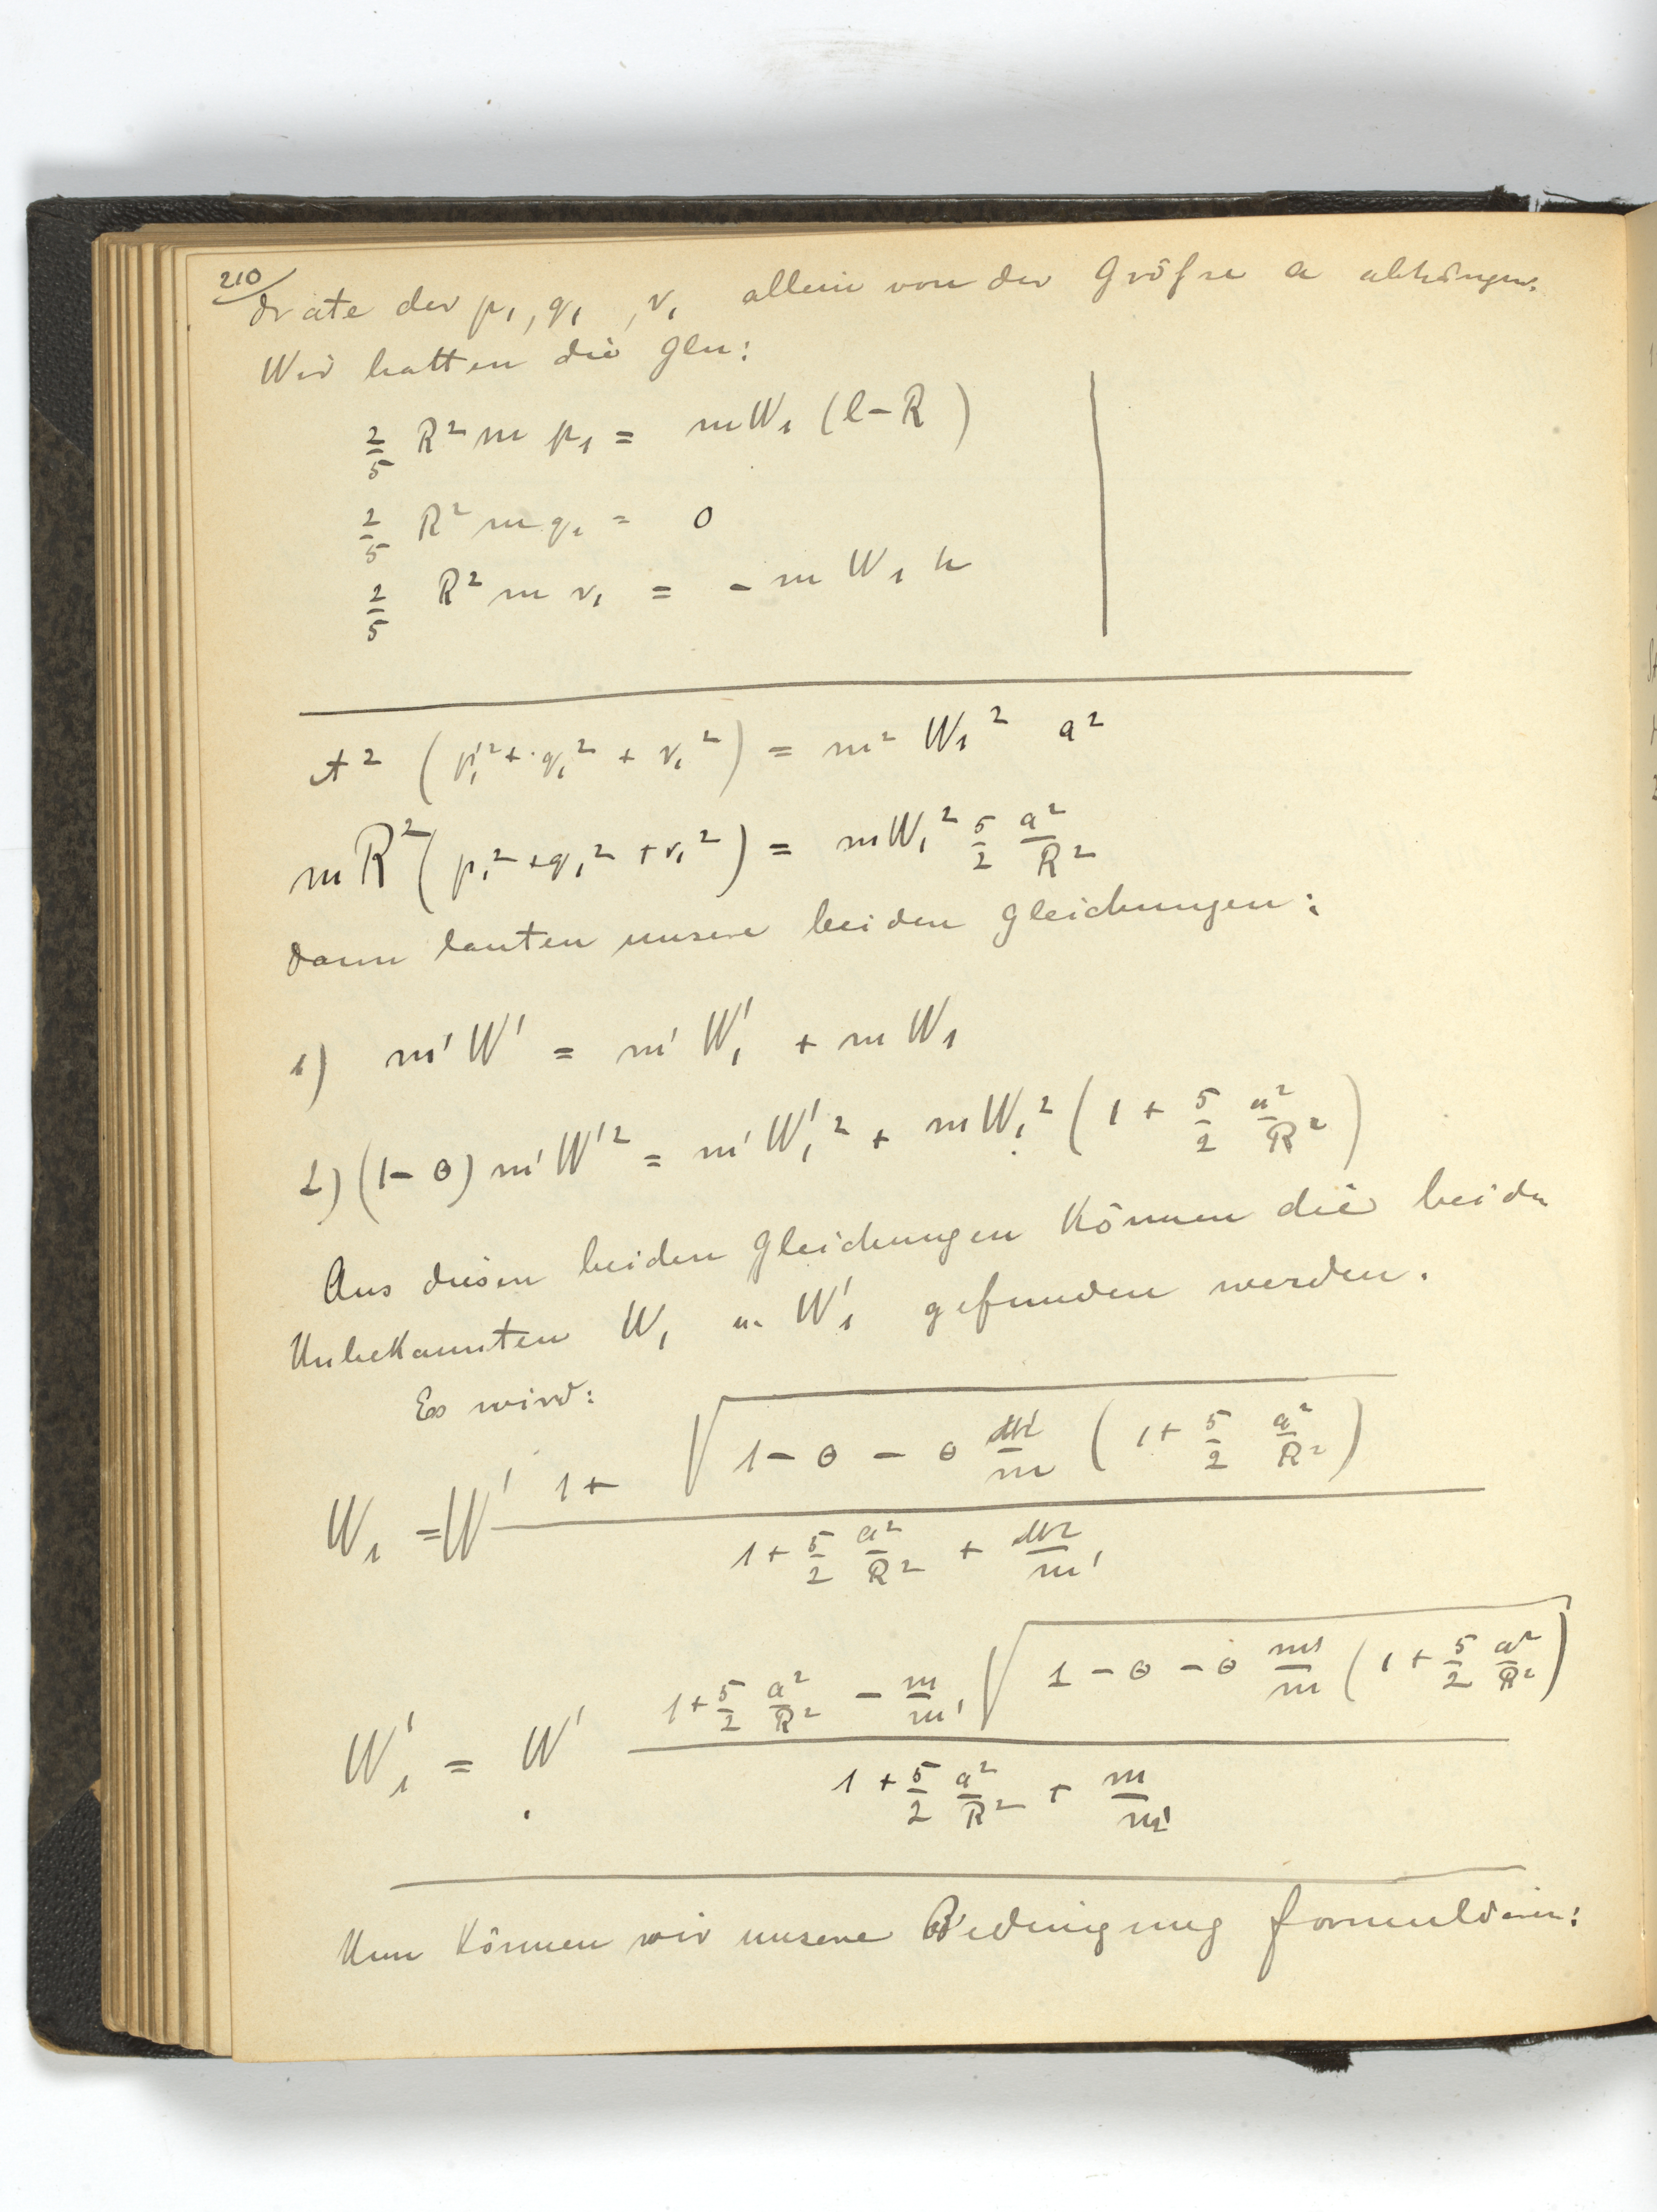 210
drate der p₁, q₁, r₁ allein von der Größe a abhängen.
Wir hatten die Gln:
2/5 R² m p₁ = m W₁ (l − R)
2/5 R² m q₁ = 0
2/5 R² m r₁ = − m W₁ h
A² (p₁² + q₁² + r₁²) = m² W₁² a²
m R² (p₁² + q₁² + r₁²) = m W₁² 5/2 a²/R²
dann lauten unsere beiden Gleichungen:
1) m' W' = m' W₁' + m W₁
2) (1 − θ) m' W'² = m' W₁'² + m W₁² (1 + 5/2 a²/R²)
Aus diesen beiden Gleichungen können die beiden
Unbekannten W₁ u. W₁' gefunden werden.
Es wird:
W₁ = W' (1 + √(1 − θ − θ m'/m (1 + 5/2 a²/R²))) / (1 + 5/2 a²/R² + m/m')
W₁' = W' (1 + 5/2 a²/R² − m/m' √(1 − θ − θ m'/m (1 + 5/2 a²/R²))) / (1 + 5/2 a²/R² + m/m')
Nun können wir unsere Bedingung formulieren: